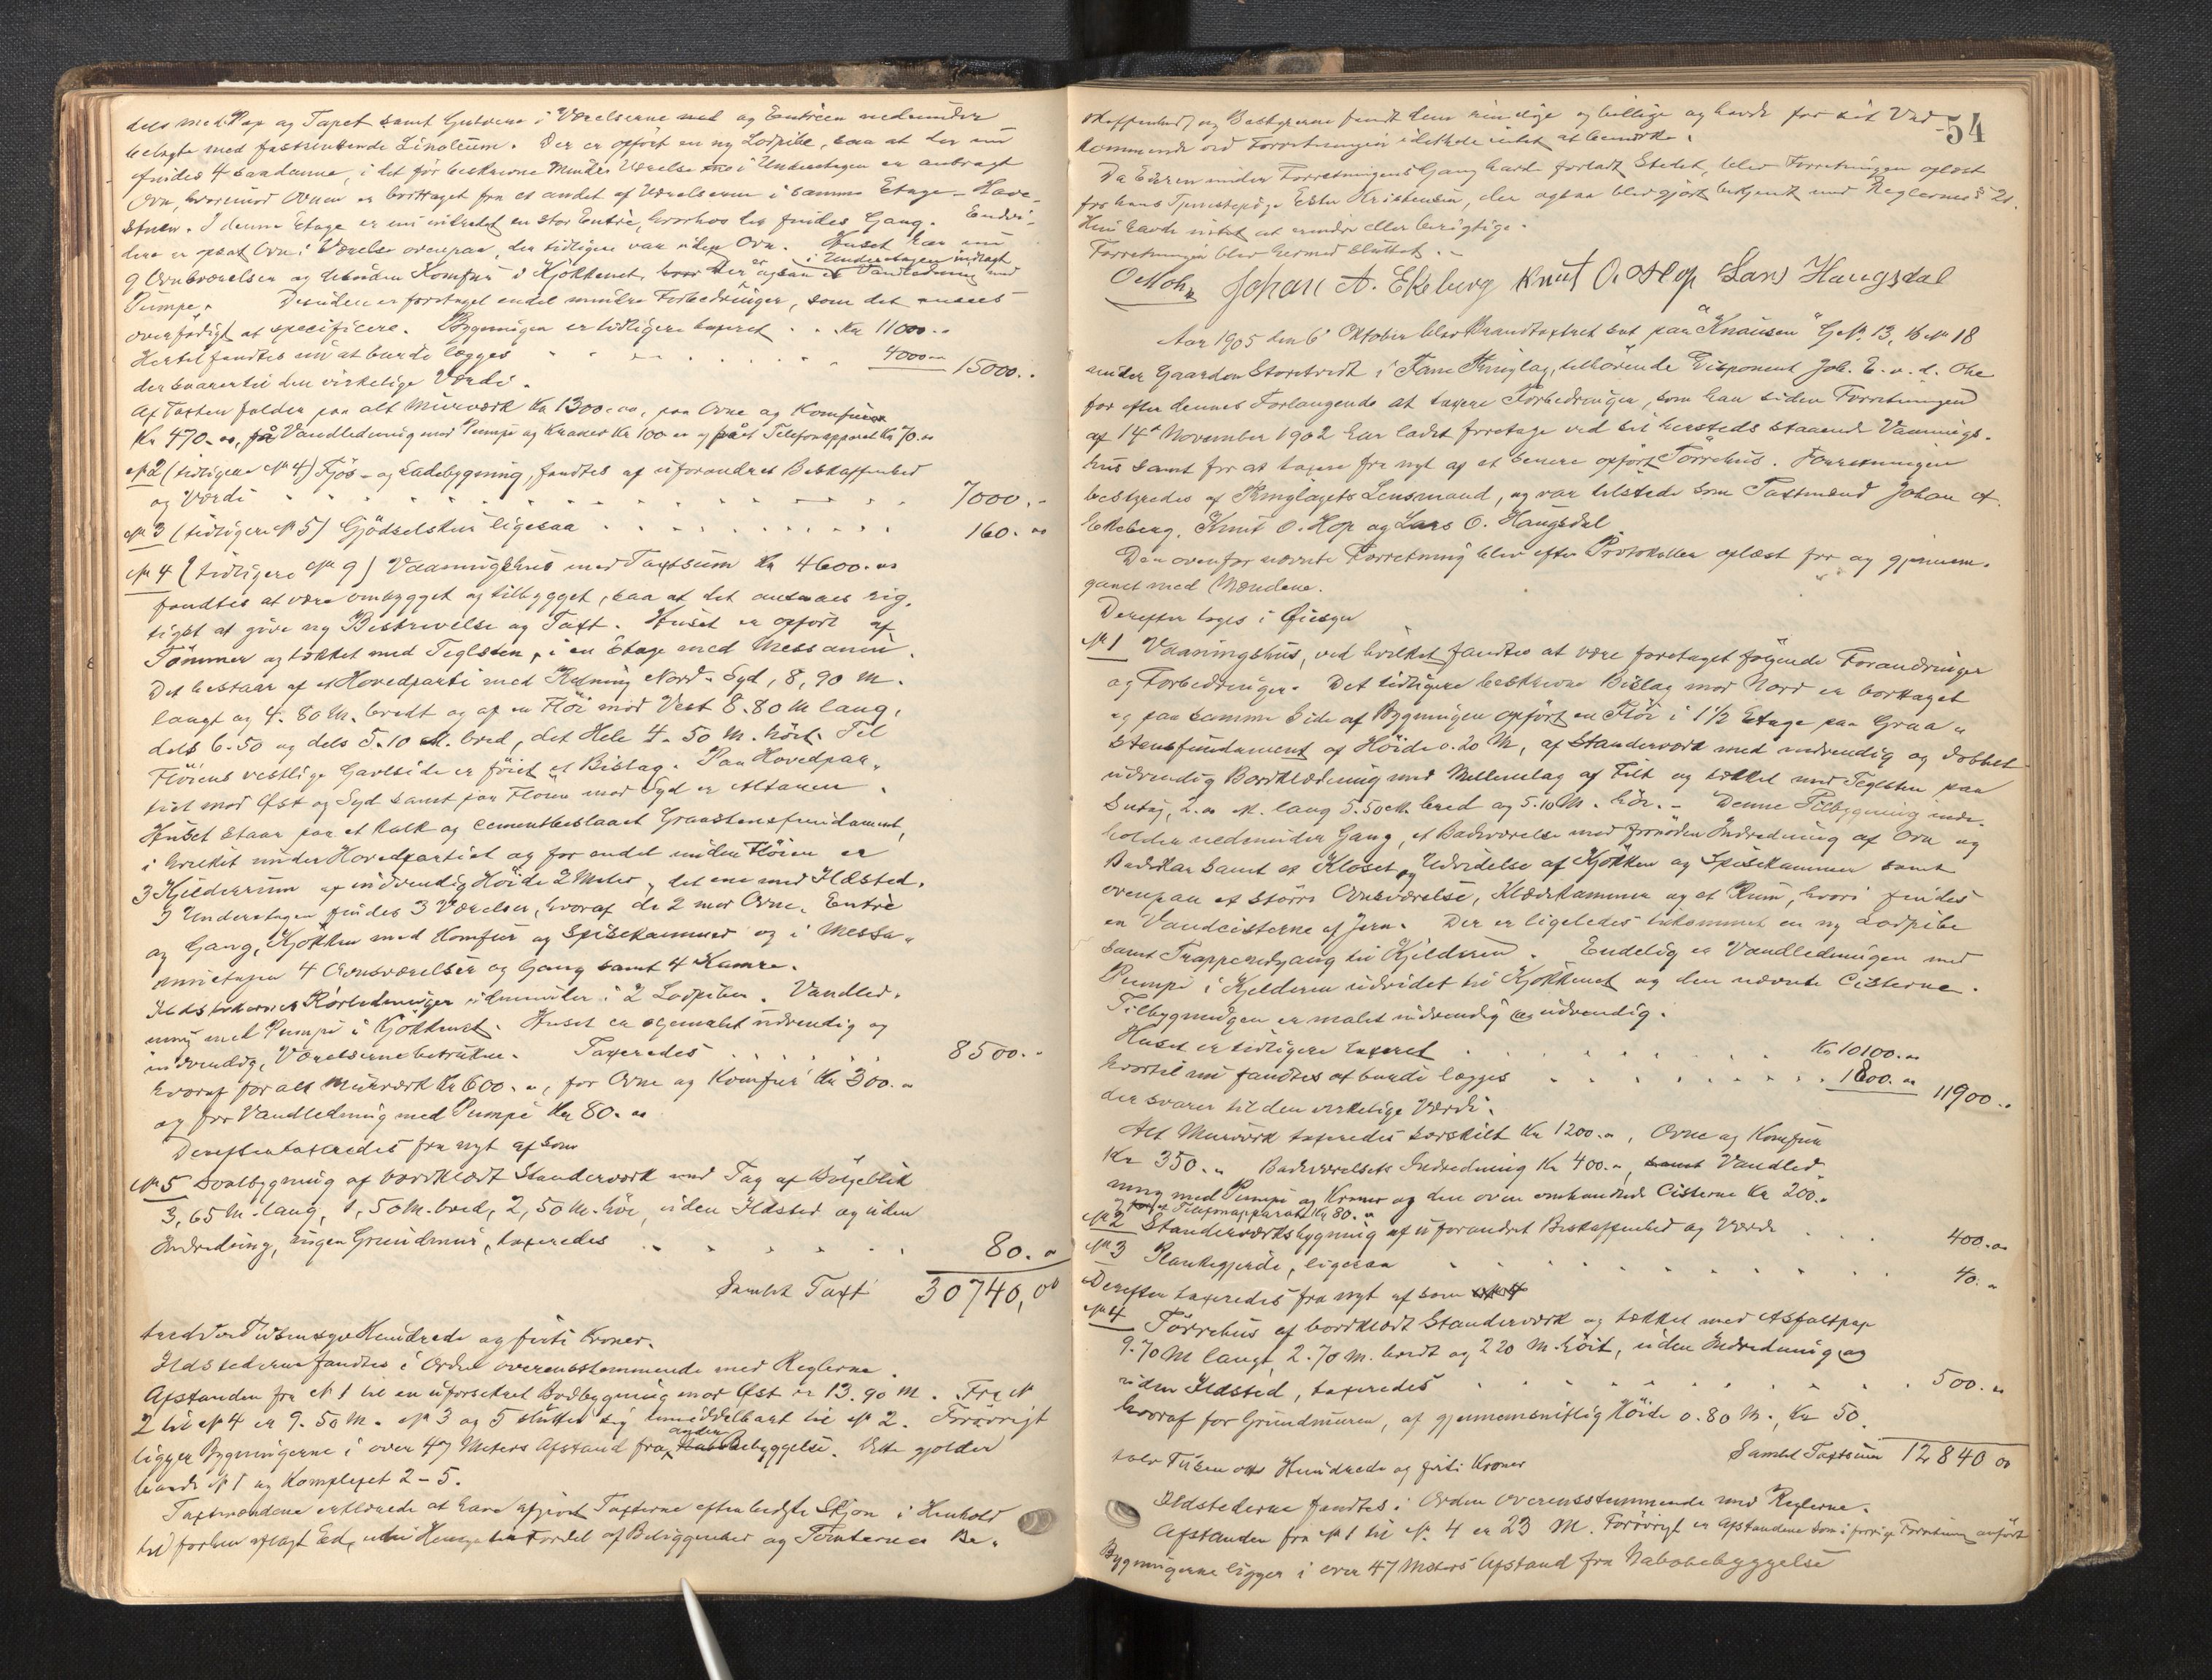 dels med Pap og Tapet samt Gulvene i Værelserne med og Entréen nedunder
belagte med fastsiddende Linoleum. Der er opført en ny Lodpibe, saa at der nu
findes 4 saadanne, i det før beskrevne Værelse i Underetagen er anbragt
Ovn, hvorimod Ovnen er borttaget fra et andet af Værelserne i samme Etage - Have-
stuen. I denne Etage er nu indredet en stor Entré, hvorhos der findes Gang. Endvi-
dere er opsat Ovn i Værelse ovenpaa, der tidligere var uden Ovn. Huset har nu
9 Ovnsværelser og desuden Komfur i Kjøkkenet, Der er ogsaa i Underetagen indlagt Vandledning med
Pumpe. Desuden er foretaget endel mindre Forbedringer, som det ansees
overflødigt at specificere. Bygningen er tidligere taxeret . . Kr 11000.-
Hertil fandtes nu at burde lægges . . . . 4000.- 15000.-
der svarer til den virkelige Værdi.
Af Taxten falder paa alt Murværk Kr 1300.00, paa Ovne og Komfur
Kr 470.00, på Vandledning med Pumpe og Kraner Kr 100.00 og på et Telefonapparat Kr 70.00
№ 2 (tidligere № 4) Fjøs- og Ladebygning, fandtes af uforandret Beskaffenhed
og Værdi . . . . 7000.-
№ 3 (tidligere № 5) Gjødselskur ligesaa . . . . 160.00
№ 4 (tidligere № 9) Vaaningshus med Taxtsum Kr 4600.00
fandtes at være ombygget og tilbygget, saa at det ansaaes rig-
tigst at give ny Beskrivelse og Taxt. Huset er opført af
Tømmer og tækket med Teglsten, i en Etage med Messanin.
Det bestaar af et Hovedparti med Retning Nord-Syd, 8,90 M.
langt og 4.80 M. bredt og af en Fløi mod Vest 8.80 M lang,
dels 6.50 og dels 5.10 M. bred, det Hele 4.50 M. høit. Til
Fløiens vestlige Gavlside er føiet et Bislag. Paa Hovedpar-
tiet mod Øst og Syd samt paa Fløien mod Syd er Altaner.
Huset staar paa et kalk og cementbeslaaet Graastensfundament,
i hvilket under Hovedpartiet og for endel under Fløien er
3 Kjelderrum af indvendig Høide 2 Meter, det ene med Ildsted.
I Underetagen findes 3 Værelser, hvoraf de 2 med Ovne, Entré
og Gang, Kjøkken med Komfur og Spisekammer og i Messa-
ninetagen 4 Ovnsværelser og Gang samt 4 Kamre.
Ildstedernes Rørledninger udmunder i 2 Lodpiber. Vandled-
ning med Pumpe i Kjøkkenet. Huset er oljemalet udvendig og
indvendig, Værelserne betrukne. Taxeredes . . . . 8500.-
hvoraf for alt Murværk Kr 600.-, for Ovne og Komfur Kr 300.-
og for Vandledning med Pumpe Kr 80.00
Derefter taxeredes fra nyt af som
№ 5 Svalbygning af bordklædt Standerværk med Tag af Bølgeblik
3,65 M. lang, 1,50 M. bred, 2,50 M. høi, uden Ildsted og uden
Indredning, ingen Grundmur, taxeredes . . . . 80.-
Samlet Taxt 30740,00
tredive Tusen syv Hundrede og firti Kroner.
Ildstederne fandtes i Orden overensstemmende med Reglerne.
Afstanden fra № 1 til en uforsikret Bodbygning mod Øst er 13.90 M. Fra №
2 til № 4 er 9.50 M. № 3 og 5 slutter sig umiddelbart til № 2. Forøvrigt
ligger Bygningerne i over 47 Meters Afstand fra anden Bebyggelse. Dette gjelder
baade № 1 og Komplexet 2-5.
Taxtmændene erklærede at have afgivet Taxterne efter bedste Skjøn i Henhold
til forhen aflagt Ed, uden Hensyn til Fordel af Beliggenhed og Tomternes Be-
54
skaffenhed, og Bestyreren fandt dem rimelige og billige og havde for sit Ved-
kommende ved Forretningen idethele intet at bemærke.
Da Eieren under Forretningens Gang havde forladt Stedet, blev Forretningen oplæst
for hans Tjenestepige Ester Kristensen, der ogsaa blev gjort bekjendt med Reglernes § 21.
Hun havde intet at erindre eller berigtige.
Forretningen blev hermed sluttet. -
O Mohr Johan A. Ekeberg Knut O. Hop Lars Haugsdal
Aar 1905 den 6' Oktober blev Brandtaxtret sat paa "Knausen" G.№. 13, B.№ 18
under Gaarden Storetvedt i Fane Thinglag, tilhørende Disponent Joh. E. v. d. Ohe
for efter dennes Forlangende at taxere Forbedringer, som han siden Forretningen
af 14' November 1902 har ladet foretage ved sit hersteds staaende Vaanings-
hus samt for at taxere fra nyt af et senere opført Tørrehus. Forretningen
bestyredes af Thinglagets Lensmand, og var tilstede som Taxtmænd Johan A.
Ekeberg, Knut O. Hop og Lars O. Haugsdal
Den ovenfor nævnte Forretning blev efter Protokollen oplæst for og gjennem-
gaaet med Mændene.
Derefter toges i Øiesyn
№ 1 Vaaningshus, ved hvilket fandtes at være foretaget følgende Forandringer
og Forbedringer. Det tidligere beskrevne Bislag mod Nord er borttaget
og paa samme Side af Bygningen opført en Fløi i 1½ Etage paa Graa-
stensfundament af Høide 0.20 M, af Standerværk med indvendig og dobbelt
udvendig Bordklædning med Mellemlag af Filt og tækket med Teglsten paa
Sutag, 2.00 M. lang 5.50 M. bred og 5.10 M. høi. - Denne Tilbygning inde-
holder nedenunder Gang, et Badeværelse med fornøden Indredning af Ovn og
Badekar samt et Kloset, og Udvidelse af Kjøkken og Spisekammer samt
ovenpaa et større Ovnsværelse, Klædekammer og et Rum, hvori findes
en Vandcisterne af Jern. Der er ligeledes tilkommet en ny Lodpibe
samt Trappenedgang til Kjelderen. Endelig er Vandledningen med
Pumpe i Kjelderen udvidet til Kjøkkenet og den nævnte Cisterne.
Tilbygningen er malet indvendig og udvendig.
Huset er tidligere taxeret . . . . Kr 10100.00
hvortil nu fandtes at burde lægges . . . . 1800.00 11900.-
der svarer til den virkelige Værdi.
Alt Murværk taxeredes særskilt Kr 1200.00, Ovne og Komfur
Kr 350.00 Badeværelsets Indredning Kr 400.00, samt Vandled
ning med Pumpe og Kraner og den oven omhandlede Cisterne Kr 200.-
og for et Telefonapparat Kr 80.-
№ 2 Standerværksbygning af uforandret Beskaffenhed og Værdi . . . 400.00
№ 3 Plankegjerde, ligesaa . . . . 40.-
Derefter taxeredes fra nyt af som № 4
№ 4 Tørrehus af bordklædt Standerværk og tækket med Asfaltpap
9.70 M langt, 2.70 M. bredt og 2 20 M. høit, uden Indredning og
uden Ildsted, taxeredes . . . . 500.-
hvoraf for Grundmuren, af gjennemsnitlig Høide 0.80 M., Kr 50.
Samlet Taxtsum 12840 00
tolv Tusen otte Hundrede og firti Kroner
Ildstederne fandtes i Orden overensstemmende med Reglerne.
Afstanden fra № 1 til № 4 er 23 M. Forøvrigt er Afstandene som i forrige Forretning anført
Bygningerne ligger i over 47 Meters Afstand fra Nabobebyggelse